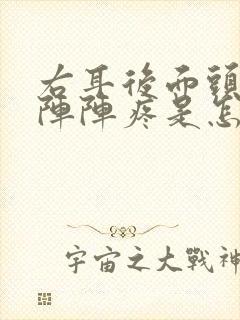 右耳後面頭
陣陣疼是怎
宇宙之大戰神